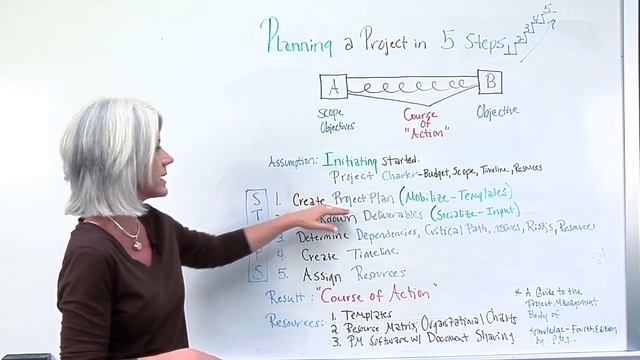 Planning a Project in 5 Steps 1 2 3 4 5
A B
Scope Objectives
Course of "Action"
Objective
Assumption: Initiating started.
Project Charter - Budget, Scope, Timeline, Resources
S 1. Create Project Plan (Mobilize - Templates)
T kdown Deliverables (Socialize - Input)
3. Determine Dependencies, Critical Path, issues, Risks, Resources
P 4. Create Timeline
S 5. Assign Resources
Result: "Course of Action"
Resources: 1. Templates
2. Resource Matrix, Organizational Charts
3. PM Software w/ Document Sharing
* A Guide to the
Project Management
Body of
Knowledge - Fourth Edition
by PMI